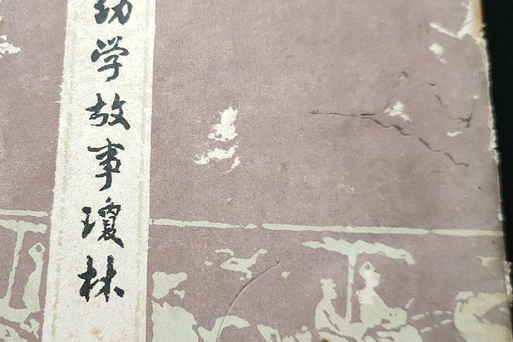 幼学故事瓊林